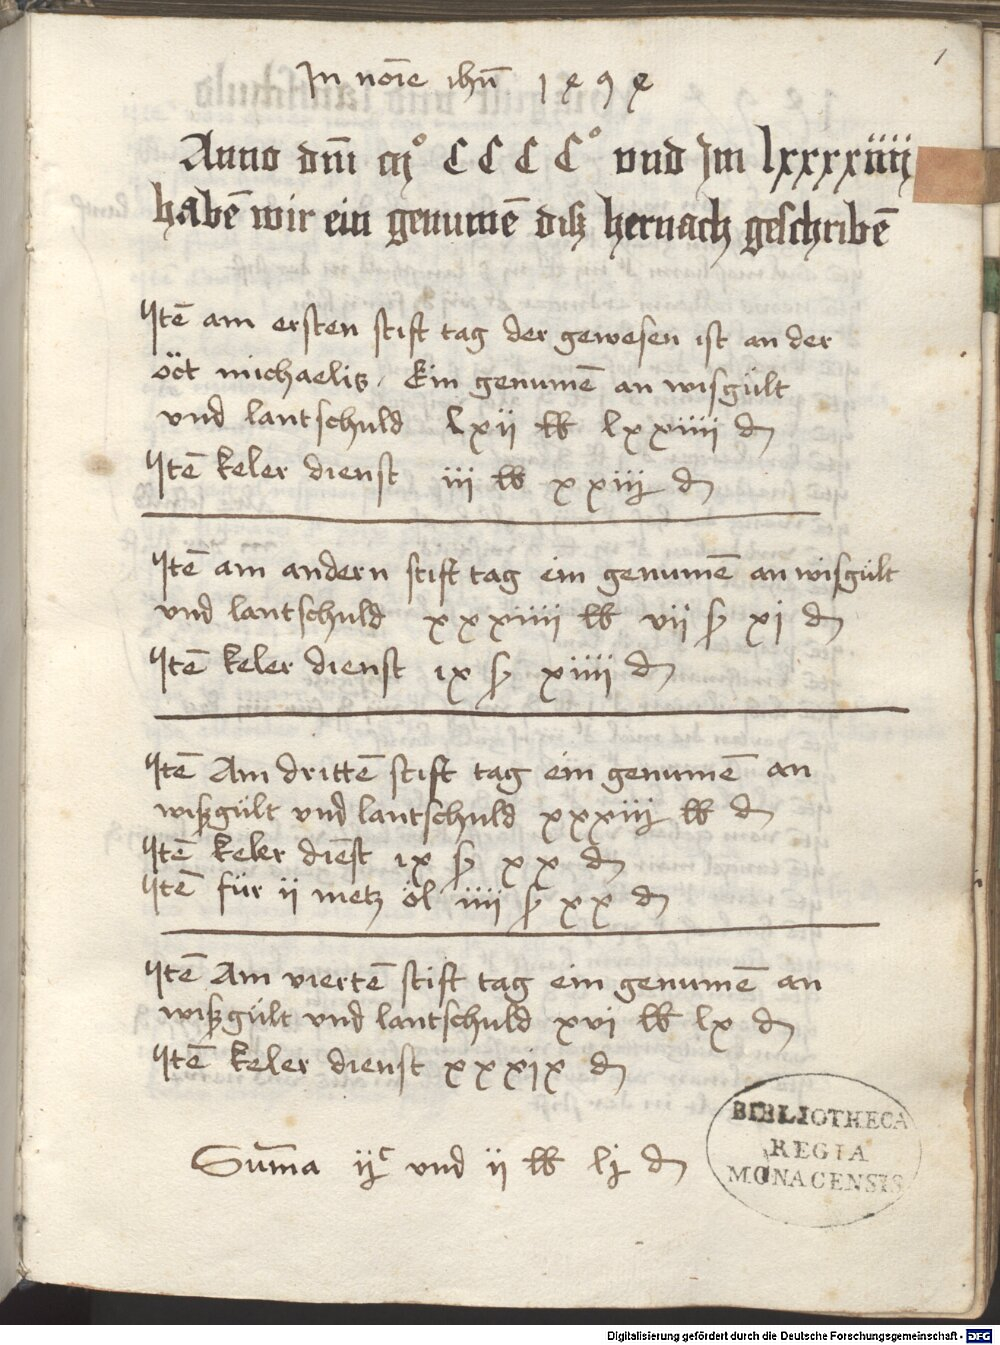 1
In noīe ihū 1494
Anno dm̄ mͦ CCCCͦ vnd Jm lxxxxiiij
habē wir ein genumē diß hernach geschribē
Itē am ersten stift tag der gewesen ist an der
öct michaeliß. Ein genumē an wisgült
vnd lantschuld lxii ℔ lxxiiii ₰
Itē keler dienst iii ℔ xxiij ₰
Itē am andern stift tag ein genumē an wisgült
vnd lantschuld xxxiiii ℔ vii ß xj ₰
Itē keler dienst ix ß xiiii ₰
Itē Am drittē stift tag ein genumē an
wißgült vnd lantschuld xxxiij ℔ ₰
Itē keler diēst ix ß xx ₰
Itē für ii metz öl iiii ß xx ₰
Itē Am viertē stift tag ein genumē an
wißgült vnd lantschuld xvi ℔ lx ₰
Itē keler dienst xxxix ₰
Sum̄a ijᶜ vnd ii ℔ lj ₰
BIBLIOTHECA
REGIA
MONACENSIS
Digitalisierung gefördert durch die Deutsche Forschungsgemeinschaft - DFG